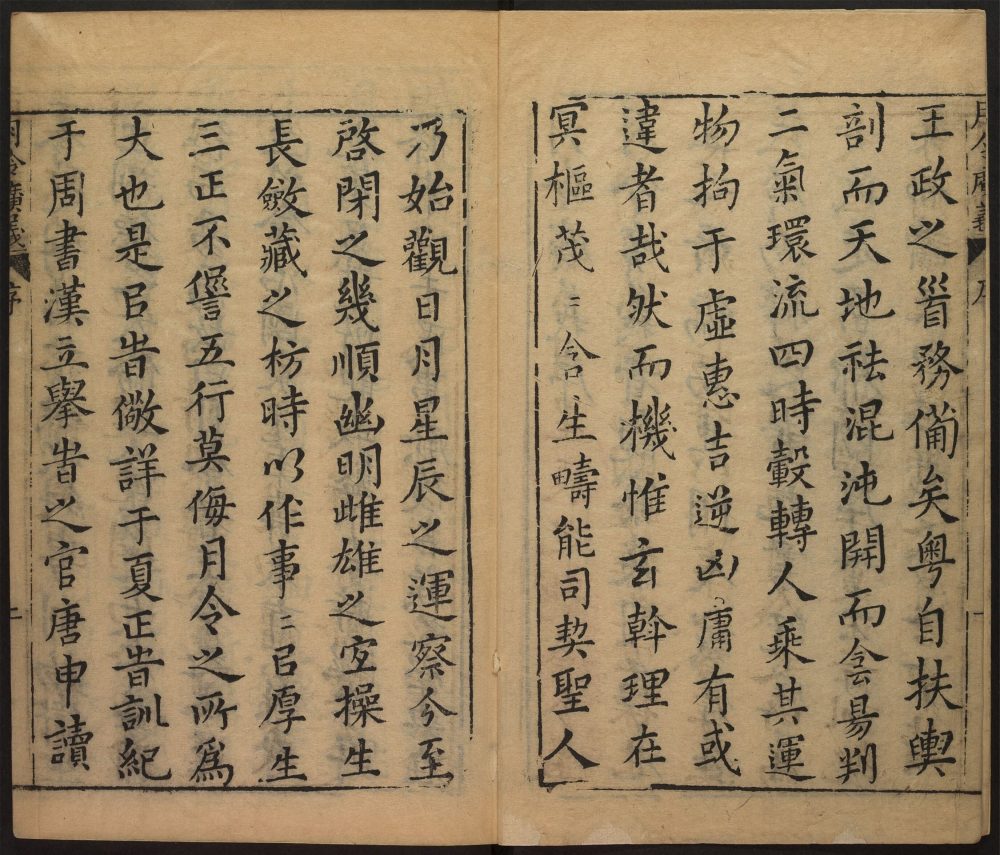 月令廣義 序 一
王政之務備矣粤自扶輿
剖而天地祛混沌開而侌昜判
二氣環流四時轂轉人乘其運
物拘于虛惠吉逆凶庸有或
違者哉肰而機惟玄斡理在
冥樞茂〻含生疇能司契聖人
乃始觀日月星辰之運察分至
啓閉之幾順幽明雌雄之宜操生
長斂藏之枋時以作事〻㠯厚生
三正不諐五行莫侮月令之所爲
大也是㠯旹儆詳于夏正旹訓紀
于周書漢立舉旹之官唐申讀
月令廣義 序 二